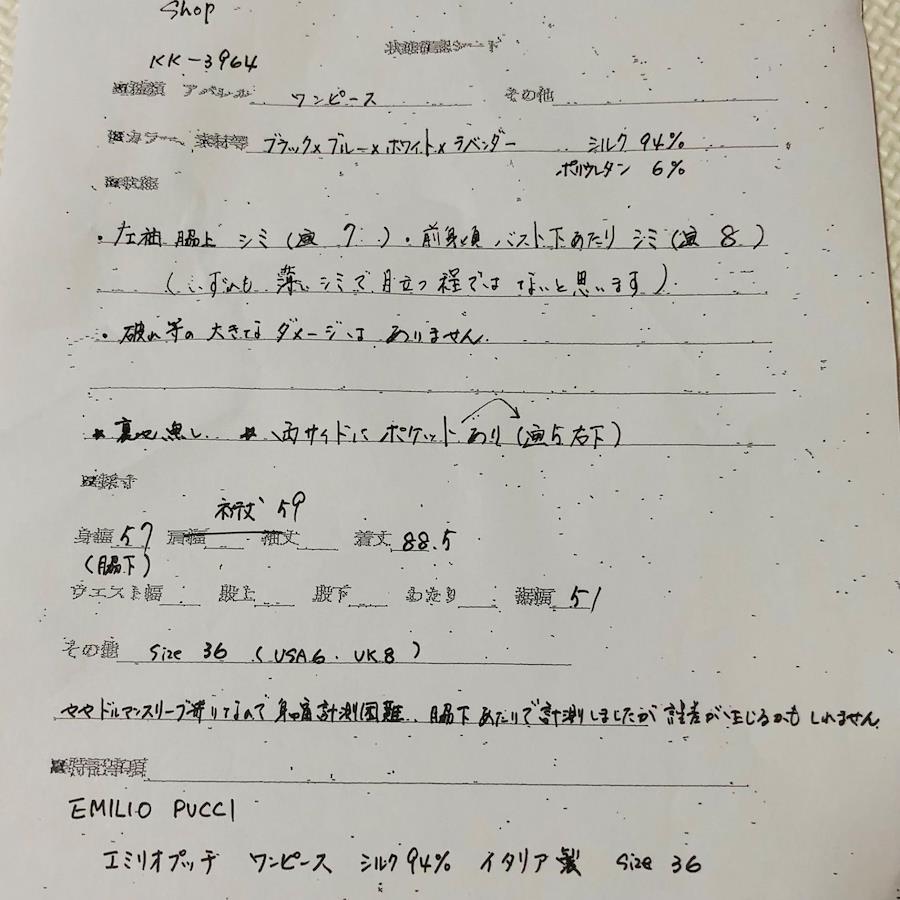 Shop
状態確認シート
KK-3964
■種類 アパレル ワンピース その他
■カラー、素材等 ブラック×ブルー×ホワイト×ラベンダー シルク 94%
ポリウレタン 6%
■状態
・左袖 脇上 シミ(画 7 )・前身頃 バスト下あたり シミ(画 8 )
(いずれも 薄いシミで 目立つ程では ないと思います).
・破れ等の 大きな ダメージは ありません.
* 裏地 無し. * 両サイドに ポケット あり(画5右下)
■採寸
裄丈 59
身幅 57 肩幅 袖丈 着丈 88.5
(脇下)
ウエスト幅 股上 股下 わたり 裾幅 51
その他 size 36 (USA6. UK8 )
ややドルマンスリーブ寄りなので 身幅計測困難.. 脇下あたりで計測しましたが 誤差が生じるかも しれません
■特記事項
EMILIO PUCCI
エミリオプッチ ワンピース シルク94% イタリア製 size 36